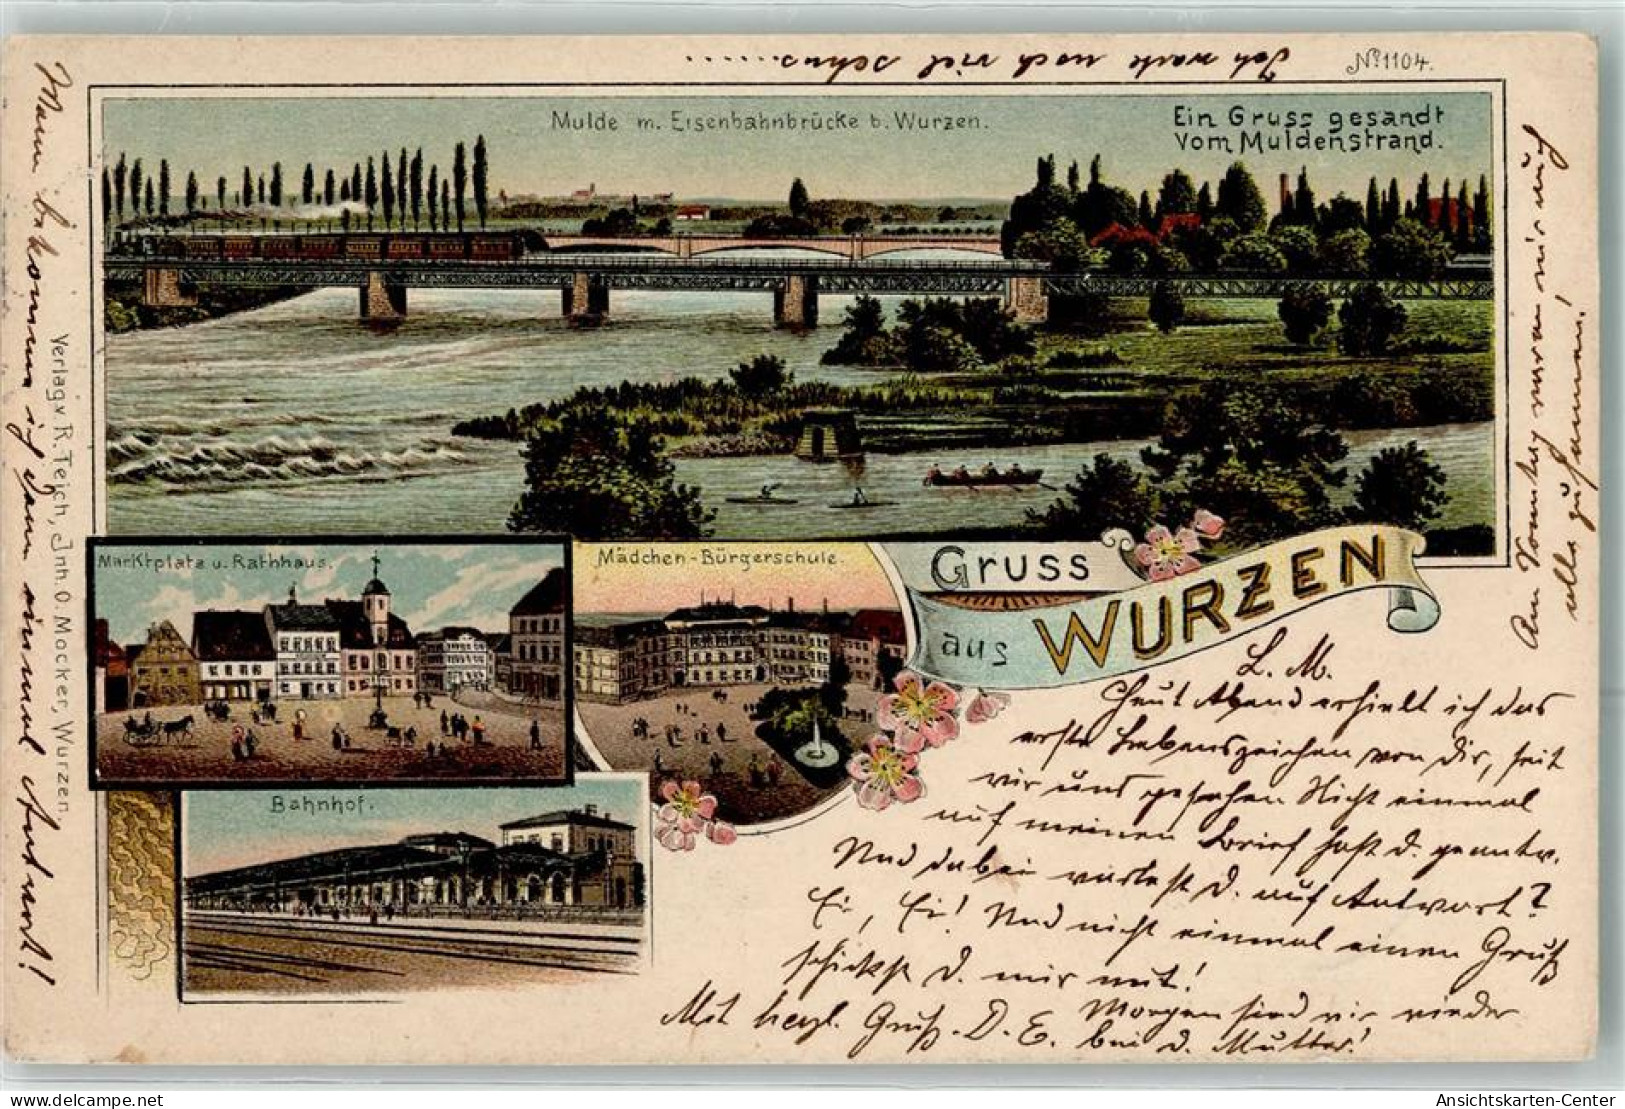 Ich warte noch viel sehns..........
No 1104.
Mulde m. Eisenbahnbrücke b. Wurzen.
Ein Gruss gesandt
vom Muldenstrand.
Marktplatz u. Rathhaus.
Mädchen-Bürgerschule.
Gruss
aus WURZEN
Bahnhof.
Verlag v. R. Teich, Inh. O. Mocker, Wurzen.
L. M.
Heut Abend erhielt ich das
erste Lebenszeichen von Dir, seit
wir uns gesehen. Nicht einmal
auf meinen Brief hast d. geantw.
Und dabei verlegst d. auf Antwort?
Ei, Ei! Und nicht einmal einen Gruß
schickst d. mir mit!
Morgen sind wir wieder
bei d. Mutter!
Mit herzl. Gruß. D. E.
Wann bekomme ich denn einmal Antwort!
Am Sonntag waren wir auch
alle zusammen!
www.delcampe.net
auction-house
Ansichtskarten-Center